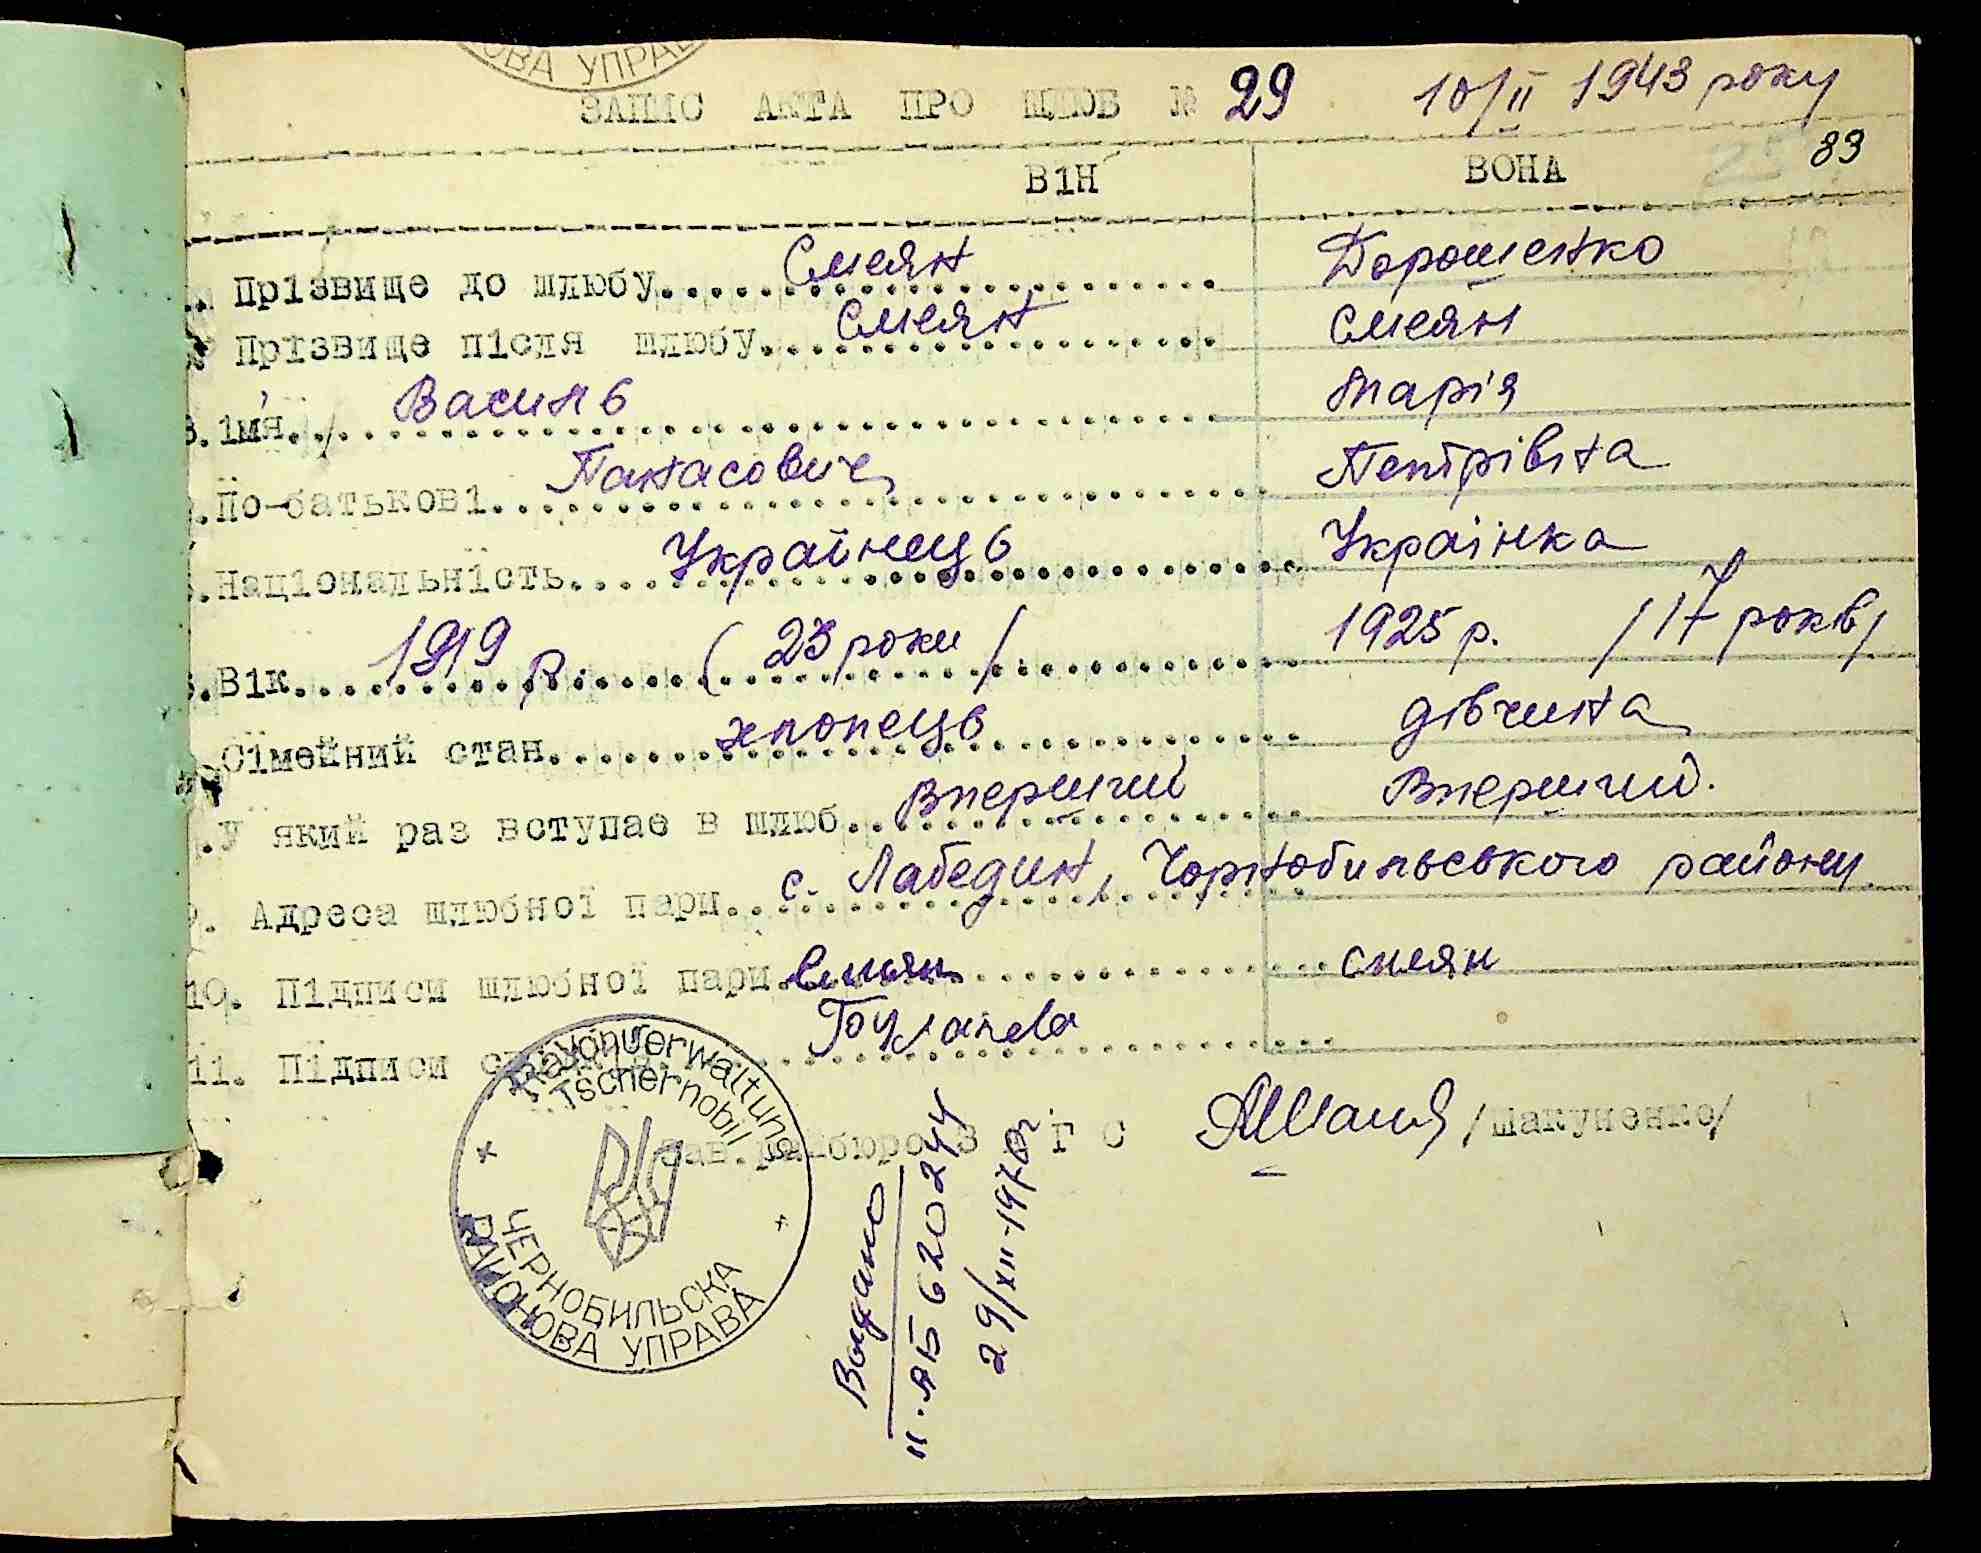 ОВА УПРАВ
ЗАПИС АКТА ПРО ШЛЮБ № 29 10/II 1943 року
83
ВІН ВОНА
Прізвище до шлюбу Смеян Дорошенко
Прізвище після шлюбу Смеян Смеян
3. Ім'я Василь Марія
По-батькові Панасович Петрівна
Національність Українець Українка
Вік 1919 р. (23 роки/ 1925 р. /17 років/
Сімейний стан хлопець дівчина
У який раз вступає в шлюб Вперший Вперший.
9. Адреса шлюбної пари с. Лабедин, Чорнобильського району
10. Підписи шлюбної пари Смеян смеян
11. Підписи
Зав. райбюро З Г С /Шакуненко/
Rayonverwaltung
Tschernobil
ЧЕРНОБИЛЬСКА
РАЙОНОВА УПРАВА
Выдано
II-АБ 620244
29/XII-1970г